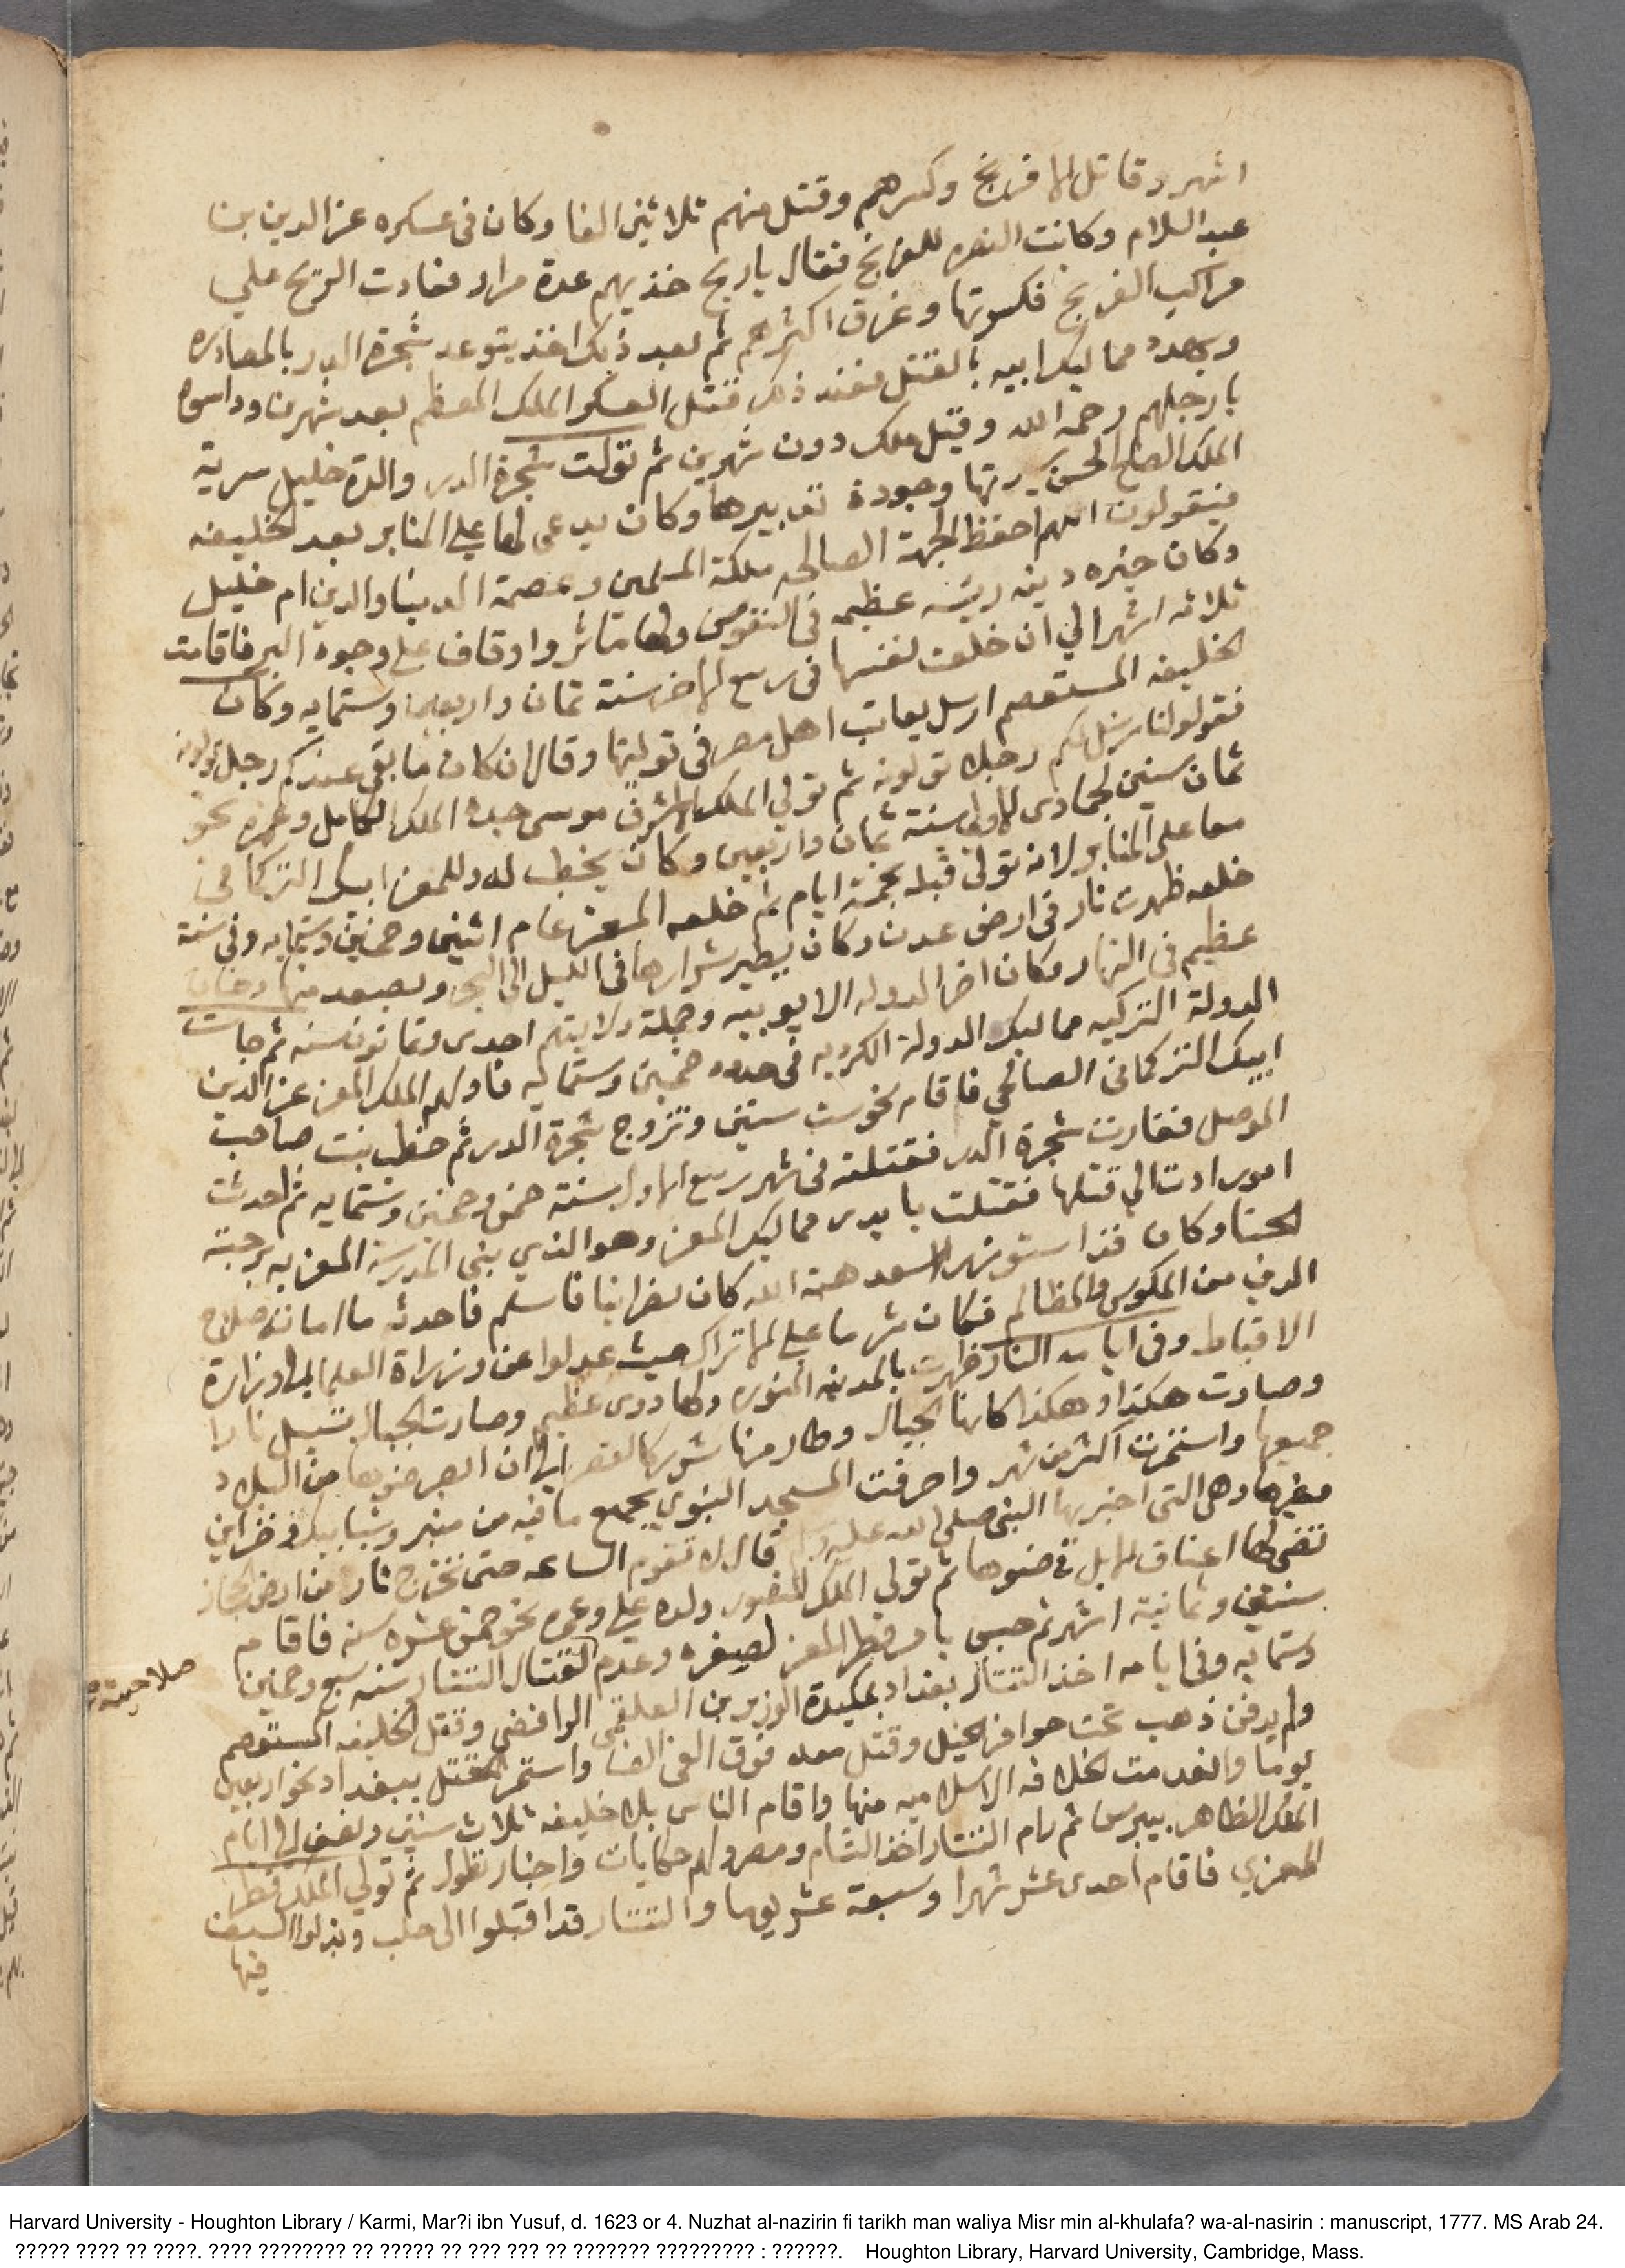 اشهر وقاتل الافرنج وكسرهم وقتل منهم ثلاثين الفا وكان فى عسكره عز الدين بن
عبد السلام وكانت النصره للفرنج فقال ياريح خذيهم عدة مرار فعادت الريح علي
مراكب الفرنج فكسرتها وغرق اكثرهم ثم بعد ذلك اخذ يتوعد شجرة الدر بالمصادره
ويهدد مماليك ابيه بالقتل فعند ذلك قتل العسكر الملك المعظم بعد شهرين وداسوه
بارجلهم رحمه الله وقيل ملك دون شهرين ثم تولت شجرة الدر والدة خليل سرية
الملك الصالح لحسن سيرتها وجودة تدبيرها وكان يدعى لها علي المنابر بعد الخليفه
فيقولون اللهم احفظ الجهة الصالحيه ملكة المسلمين وعصمة الدينا والدين ام خليل
وكان خيره دينه رئيسه عظيمه فى النفوس ولها مآثر واوقاف على وجوه البر فاقامت
ثلاثه اشهر الي ان خلعت نفسها فى ربيع الاخر سنة ثمان واربعين وستمايه وكان
الخليفه المستعصم ارسل يعاتب اهل مصر فى توليتها وقال ان كان ما بقى عندكم رجل تولونه
فقولولنا نرسل لكم رجلا تولونه ثم تولي الملك الاشرف موسى جده الملك الكامل وعمره نحو
ثمان سنين لجمادى الاولى سنة ثمان واربعين وكان يخطب له وللمعز ايبك التركمانى
معا على المنابر لانه تولى قبله بخمسة ايام ثم خلعه المعز عام اثنين وخمسين وستمايه وفى سنة
خلعه ظهرت نار فى ارض عدن وكان يطير شرارها فى الليل الى البحر ويصعد منها دخان
عظيم فى النهار وكان اخر الدوله الايوبيه وجملة ولايتهم احدى وثمانون سنه ثم جات
الدولة التركيه مماليك الدولة الكرديه فى حدود خمسين وستمايه فاولهم الملك المعز عز الدين
ايبك التركمانى الصالحي فاقام نحو ست سنين وتزوج شجرة الدر ثم خطب بنت صاحب
الموصل فغارت شجرة الدر فقتلته فى شهر ربيع الاول سنة خمس وخمسين وستمايه ثم احدثت
امور ادت الي قتلها فقتلت بايدى مماليك المعز وهو الذي بنى المدرسة المعزيه برحبة
الحنا وكان قد استوزر الاسعد هبة الله كان نصرانيا فاسلم فاحدث ما امانه صلاح
الدين من المكوس والمظالم فكان شرما على الاتراك حيث عدلوا عن وزراة العلما الى وزارة
الاقباط وفى ايامه النار ظهرت بالمدينه المنوره ولها دوى عظيم وصارت الجبال تسيل نارا
وصارت هكذا وهكذا كانها الجبال وطار منها شررها كالقصر الى ان ابصر ضوؤها من البلاد
جميعها واستمرت اكثر من شهر واحرقت المسجد النبوي بجميع ما فيه من منبر وشبابيك وخزاين
وغيرها وهى التى اخبر بها النبى صلى الله عليه وسلم قال لا تقوم الساعه حتى تخرج نار من ارض الحجاز
تضى لها اعناق الابل فى ضوها ثم تولي الملك المنصور ولده علي وعمره نحو خمس عشره سنه فاقام
سنتين وثمانية اشهر ثم حبس بامر قطز المعز لصغره وعدم
صلاحيته
لقتال التتار سنه سبع وخمسين
وستمايه وفى ايامه اخذ التتار بغداد بمكيدة الوزير بن العلقمى الرافضي وقتل الخليفه المستعصم
ولم يدفن ذهب تحت حوافر الخيل وقتل معه فوق الفى الف واستمر القتل ببغداد نحو اربعين
يوما وانعدمت الخلافه الاسلاميه منها واقام الناس بلا خليفه ثلاث سنين ونصف الى ايام
الملك الظاهر بيبرس ثم رام التتار اخذ الشام ومصر ولهم حكايات واخبار تطول ثم تولي الملك قطز
المعزي فاقام احدى عشر شهرا وسبعة عشر يوما والتتار قد اقبلوا الى حلب وبذلوا السيف
فيها
Harvard University - Houghton Library / Karmi, Mar?i ibn Yusuf, d. 1623 or 4. Nuzhat al-nazirin fi tarikh man waliya Misr min al-khulafa? wa-al-nasirin : manuscript, 1777. MS Arab 24.
????? ???? ?? ????. ???? ???????? ?? ????? ?? ??? ??? ?? ??????? ????????? : ??????. Houghton Library, Harvard University, Cambridge, Mass.